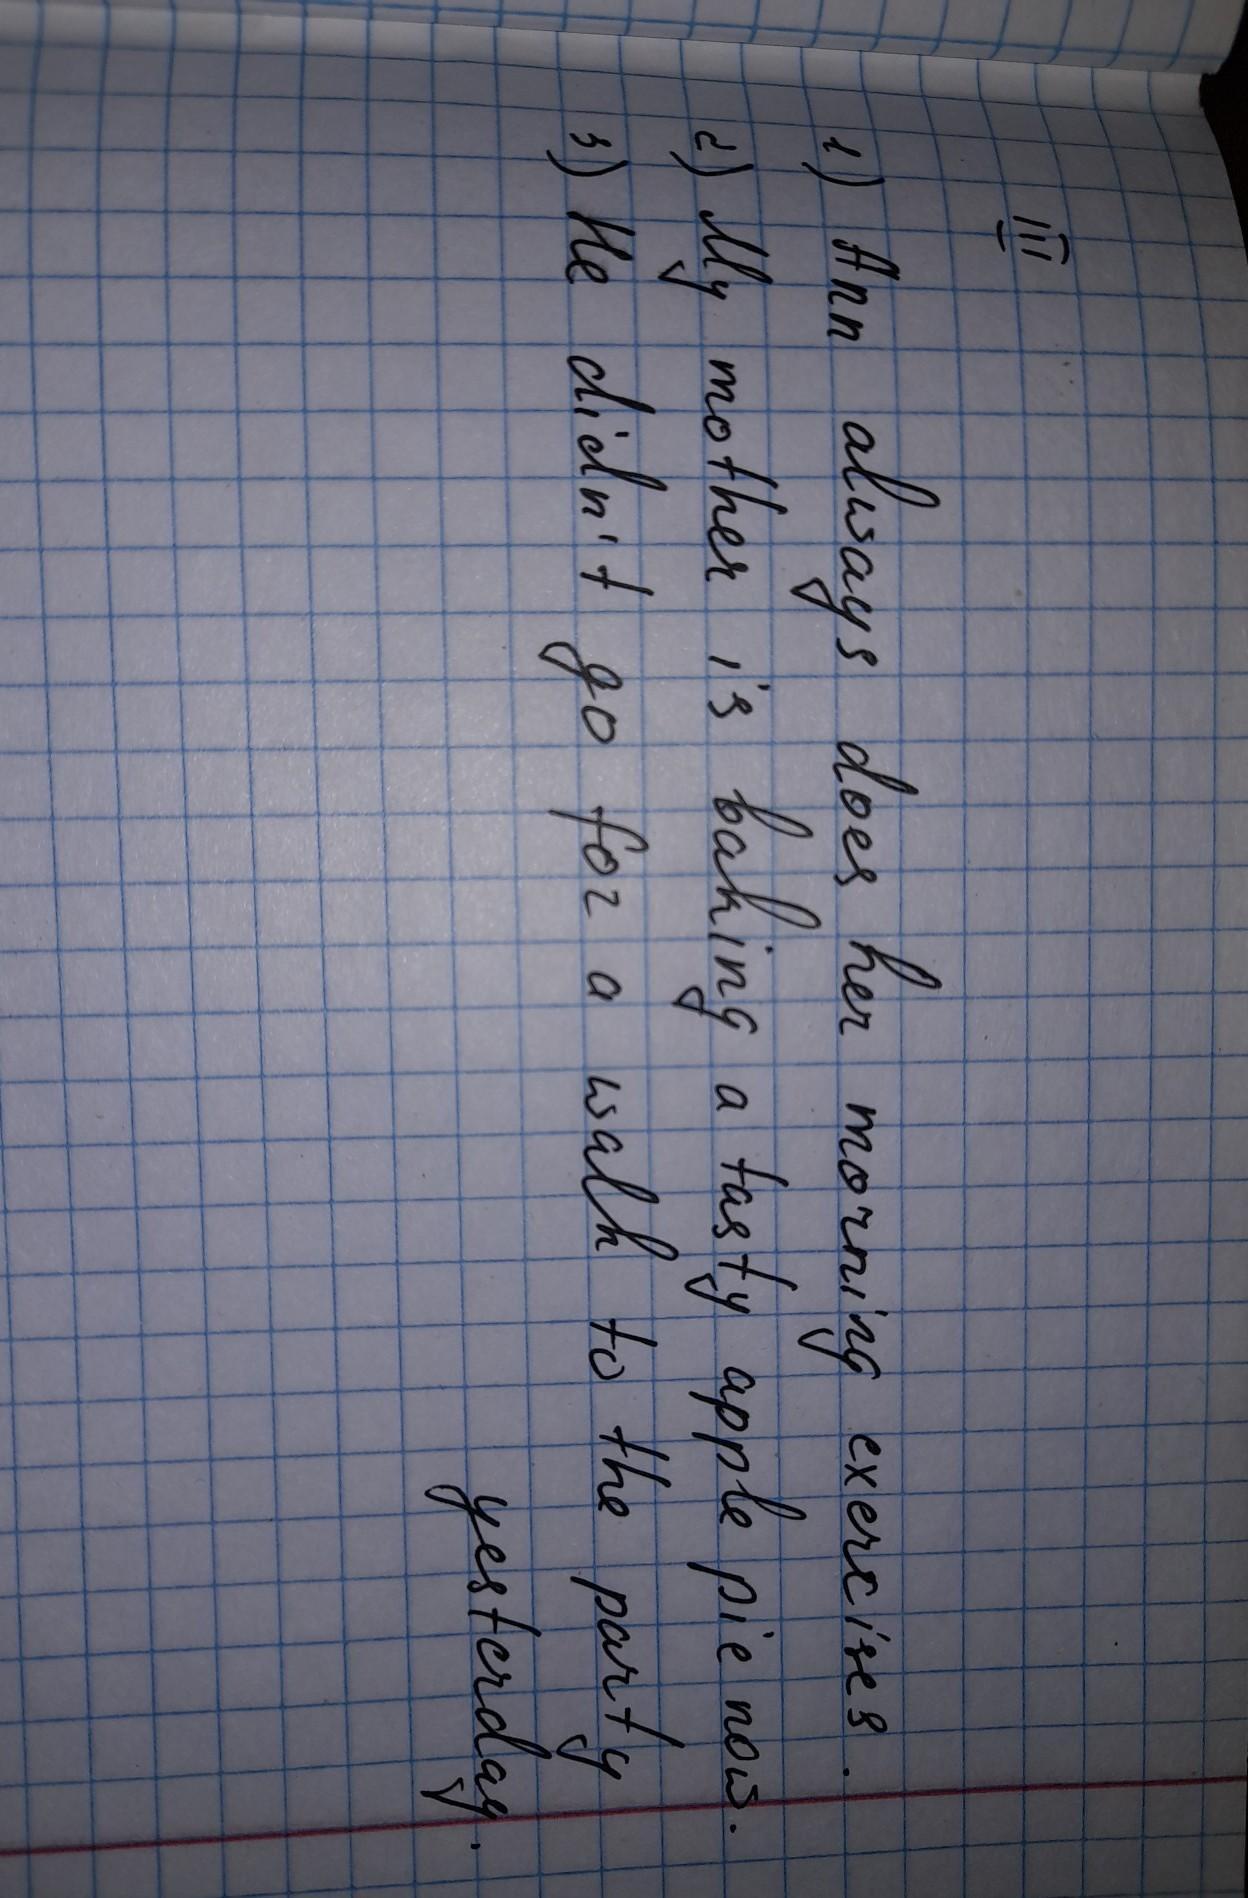 III
1) Ann always does her morning exercises.
2) My mother is baking a tasty apple pie now.
3) He didn't go for a walk to the party
yesterday.